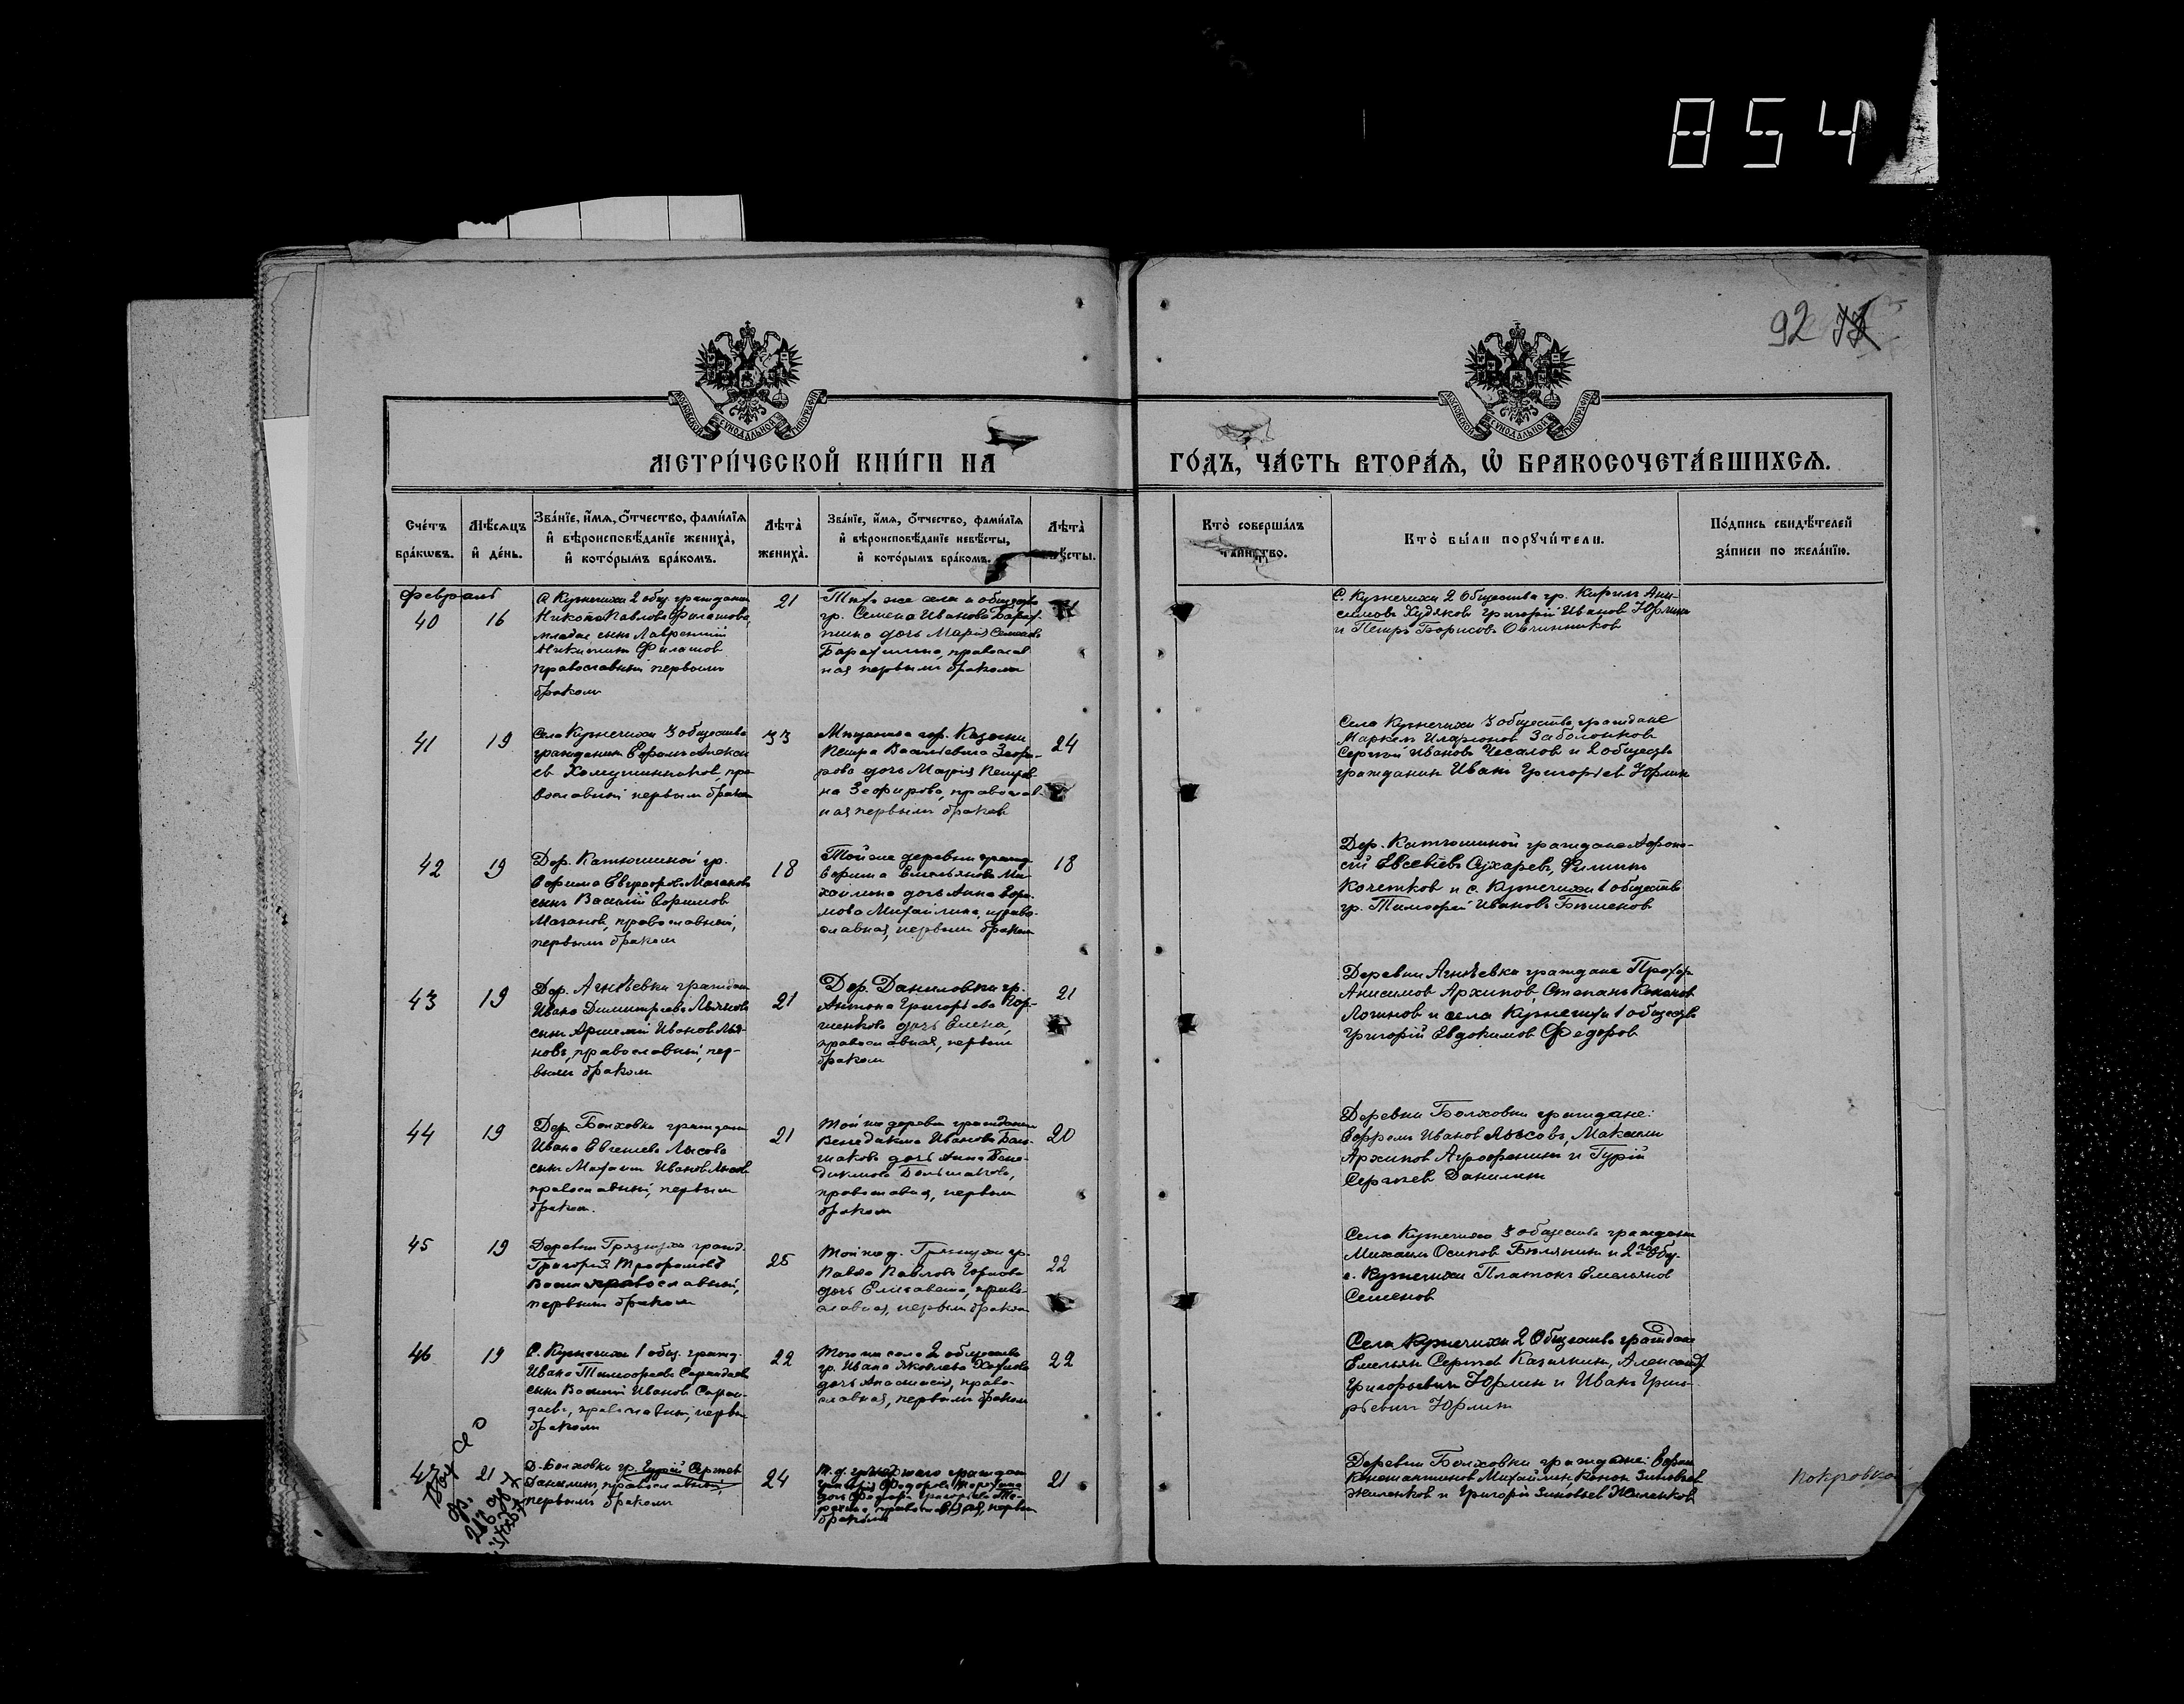 854
92
МОСКОВСКОЙ СѴНОДАЛЬНОЙ ТИПОГРАФІИ
МОСКОВСКОЙ СѴНОДАЛЬНОЙ ТИПОГРАФІИ
МЕТРИ́ЧЕСКОЙ КНИ́ГИ НА
ГО́ДЪ, ЧА́СТЬ ВТОРА́Я, Ѡ БРАКОСОЧЕТА́ВШИХСЯ.
Сче́тъ бра́кѡвъ.
Мѣ́сяцъ и҆ де́нь.
Зва́нїе, и҆́мѧ, ѻ҆́тчество, фами́лїѧ и҆ вѣроисповѣ́данїе жениха̀, и҆ кото́рымъ бра́комъ.
Лѣта̀ жениха̀.
Зва́нїе, и҆́мѧ, ѻ҆́тчество, фами́лїѧ и҆ вѣроисповѣ́данїе невѣ́сты, и҆ кото́рымъ бра́комъ.
Лѣта̀
Кто̀ соверша́лъ
Кто̀ бы́ли порꙋчи́тели.
По́дпись свидѣ́телей за́писи по жела́нїю.
Февраль
40
16
С. Кузнечихи 2 общ. гражданин
Никиты Павлова Филатова,
сын Лаврентий
Никитин Филатов
православный первым
браком
21
Того же села и общества
гр. Семена Иванова
дочь Мария
православ
ная первым браком
С. Кузнечихи 2 общества гр. Кирилл Ани-
симов Худяков Григорий Иванов Юрлин
и Петр Борисов Овчинников
41
19
Села Кузнечихи 3 общества
гражданин Ефрем Алексе
ев Хомутинников, пра
вославный первым браком
33
Мещанина гор. Казани
Петра Васильевича Зефи-
рова дочь Мария Петров
на Зефирова, православ-
ная первым браком
24
Села Кузнечихи 3 общества граждане
Маркел Иларионов Заболонков
Сергей Иванов Чесалов и 2 общества
гражданин Иван Григорьев Юрлин
42
19
Дер. Катюшиной гр.
Ефима
сын Василий Ефимов
православный,
первым браком
18
Той же деревни гражд.
Ефима Емельянова Ми-
хайлина дочь Анна Ефи-
мова Михайлина, право-
славная, первым браком
18
Дер. Катюшиной граждане Афана-
сий Евсевьев Сухарев, Филипп
Кочетков и с. Кузнечихи 1 общества
гр. Тимофей Иванов
43
19
Дер. Агнѣевки граждан
Ивана Димитриева
сын Артемий Иванов
православный, пер-
вым браком
21
Дер. Даниловки гр.
Антона Григорьева Гор-
шенкова дочь Елена,
православная, первым
браком
21
Деревни Агнѣевки граждане Прохор
Анисимов Архипов, Степан Кононов
Логинов и села Кузнечихи 1 общества
Григорий Евдокимов Федоров
44
19
Дер. Болховки граждан
Ивана Евгениева Лысова
сын Иванов Лысов
православный, первым
браком.
21
Той же деревни гражданина
Венедикта Иванова Боль-
шакова дочь Анна Вене-
диктова Большакова,
православная, первым
браком
20
Деревни Болховки граждане:
Ефрем Иванов Лысов, Максим
Архипов Агрофенин и Гурий
Сергеев Данилин
45
19
Деревни Грязнухи гражд.
Григорий Трофимов
православный,
первым браком
25
Той же д. Грязнухи гр.
Павла Павлова
дочь Елисавета, право-
славная, первым браком
22
Села Кузнечихи 3 общества граждане
Михаил Осипов Белянин и 2го общ.
с. Кузнечихи Платон Емельянов
Семенов
46
19
С. Кузнечихи 1 общ. гражд.
Ивана Тимофеева
сын Василий Иванов
православный, первым
браком
22
Того же села 2 общества
гр. Ивана Яковлева
дочь Анастасия, право-
славная, первым браком
22
Села Кузнечихи 2 общества граждане
Емельян Сергеев Казачкин, Александр
Григорьевич Юрлин и Иван Григо-
рьевич Юрлин
47
21
Д. Болховки гр. Гурий Сергеев
Данилин, православный,
первым браком
24
православная, первым
браком
21
Деревни Болховки граждане: Ефрем
Константинов Михайлин, Конон Зиновьев
Жиленков и Григорий Зиновьев Жиленков
Покровка